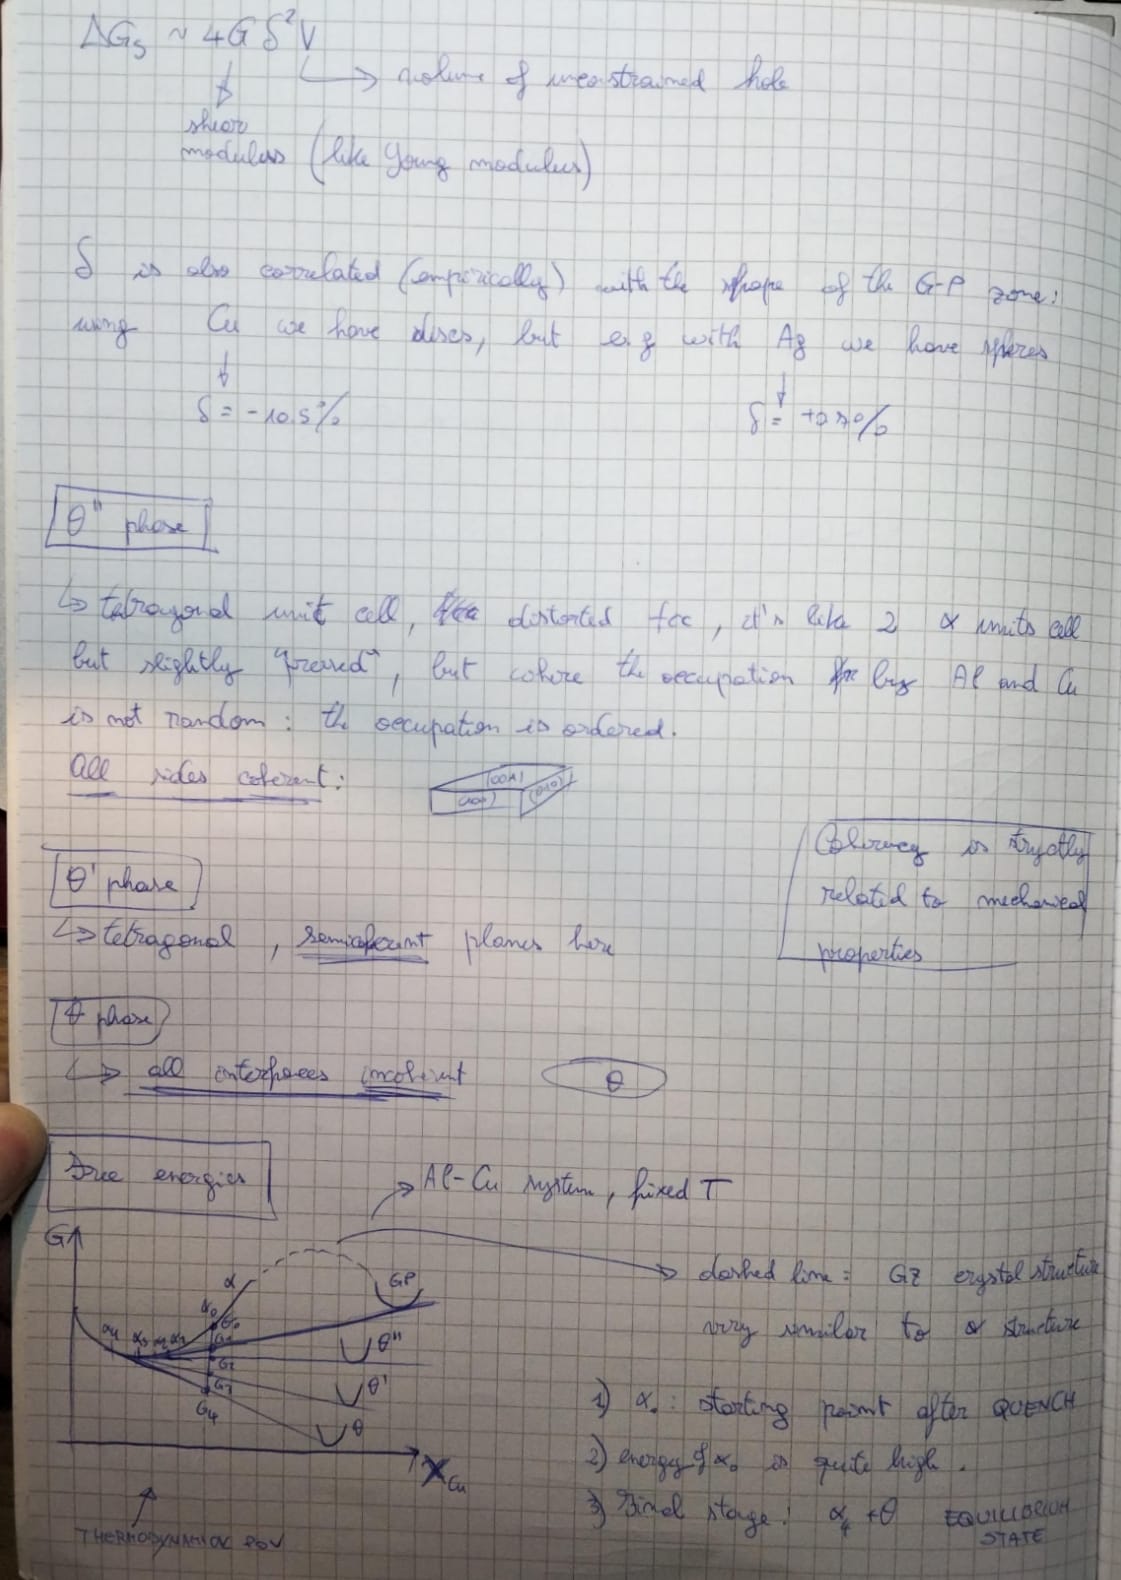 ΔGs ~ 4G δ²V
→ volume of unconstrained hole
shear
modulus (like Young modulus)
δ is also correlated (empirically) with the shape of the G-P zone:
using Cu we have discs, but e.g. with Ag we have spheres
δ = -10.5%
δ = +0.7%
θ'' phase
↳ tetragonal unit cell, distorted fcc, it's like 2 α units cell
but slightly "pressed", but where the occupation by Al and Cu
is not random: the occupation is ordered.
All sides coherent:
(001)
(100) (010)
Coherency is stryctly
related to mechanical
properties
θ' phase
↳ tetragonal, semicoherent planes here
θ phase
↳ all interfaces incoherent
θ
Free energies
→ Al-Cu system, fixed T
G
α
GP
→ dashed line = GZ crystal structure
very similar to α structure
α₀
G₀
α₄ α₃ α₂ α₁
G₁
θ''
G₂
G₃
θ'
G₄
θ
1) α₀: starting point after QUENCH
2) energy of α₀ is quite high.
X Cu
3) Final stage: α₄ + θ EQUILIBRIUM
STATE
THERMODYNAMICAL POV